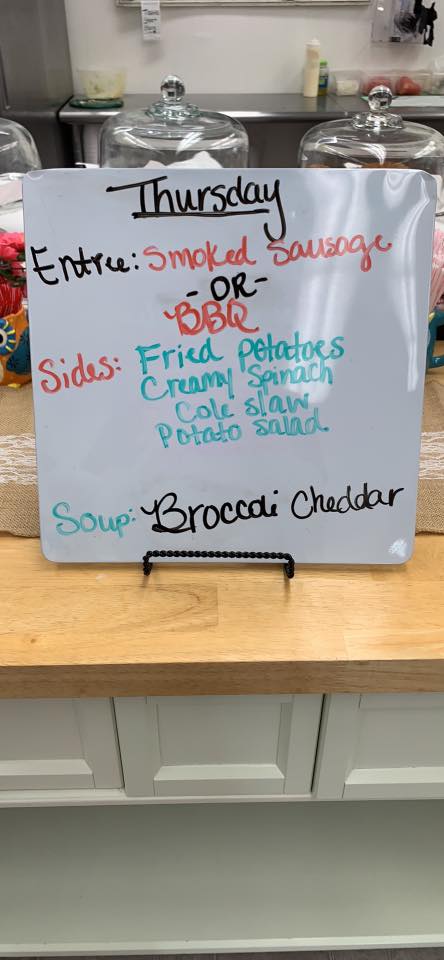 Thursday
Entree: Smoked Sausage
- OR -
BBQ
Sides: Fried potatoes
Creamy Spinach
Cole slaw
Potato salad
Soup: Broccoli Cheddar